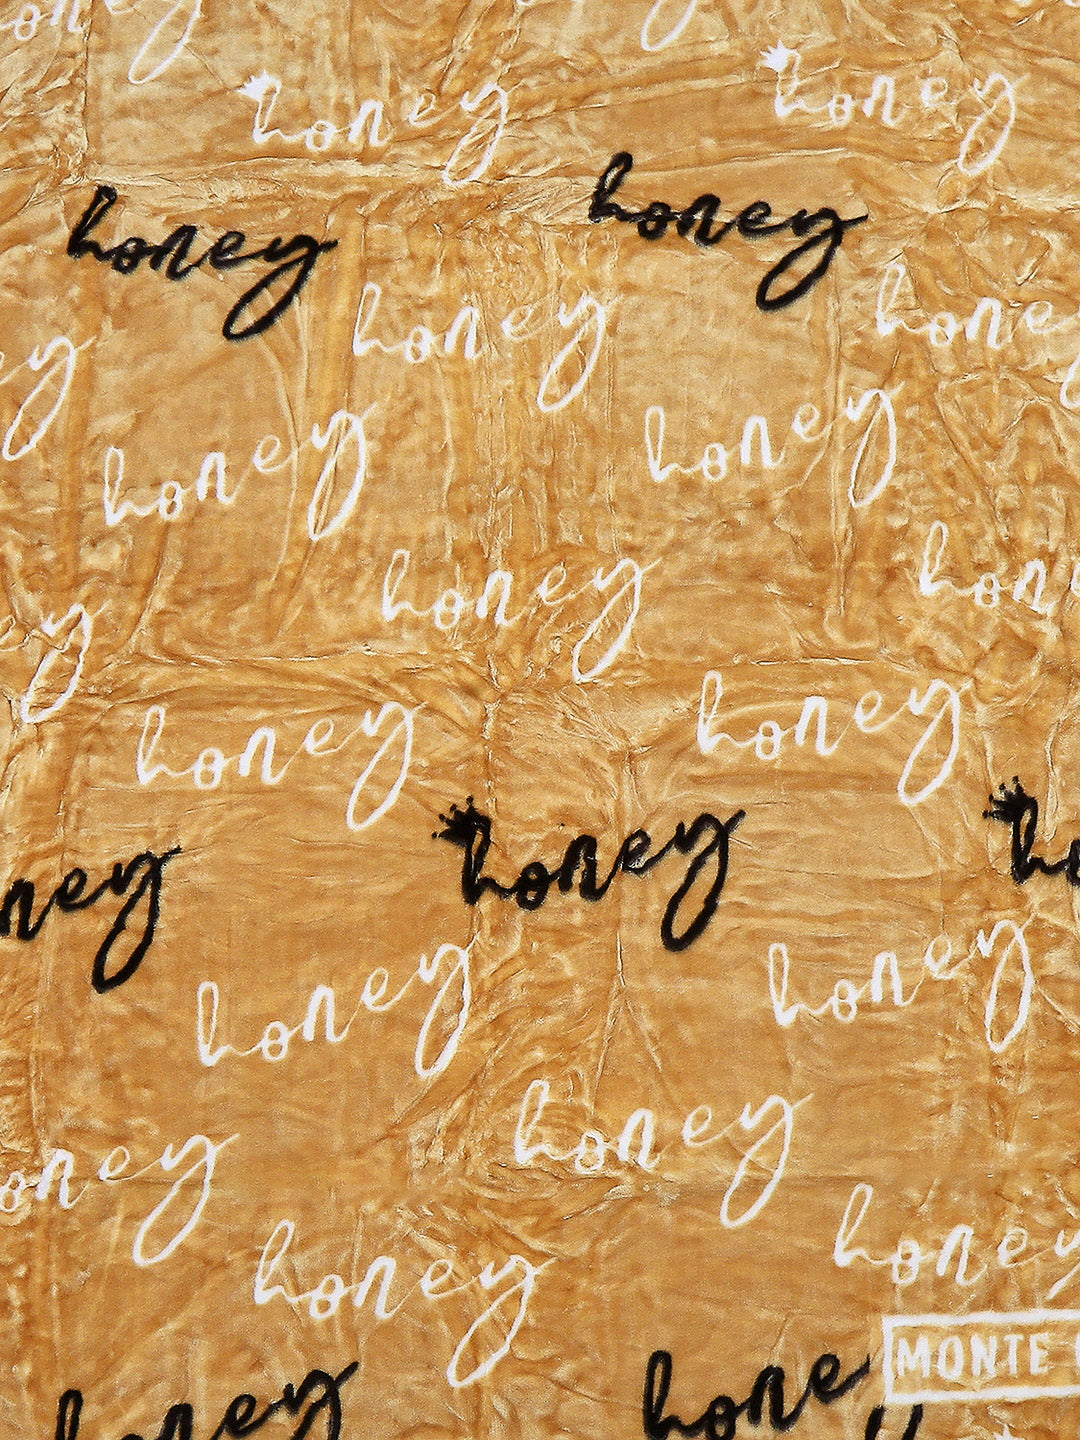 honey
honey
honey
honey
honey
honey
honey
honey
honey
honey
hon
honey
honey
honey
ney
honey
honey
honey
honey
honey
honey
honey
MONTE
honey
hone